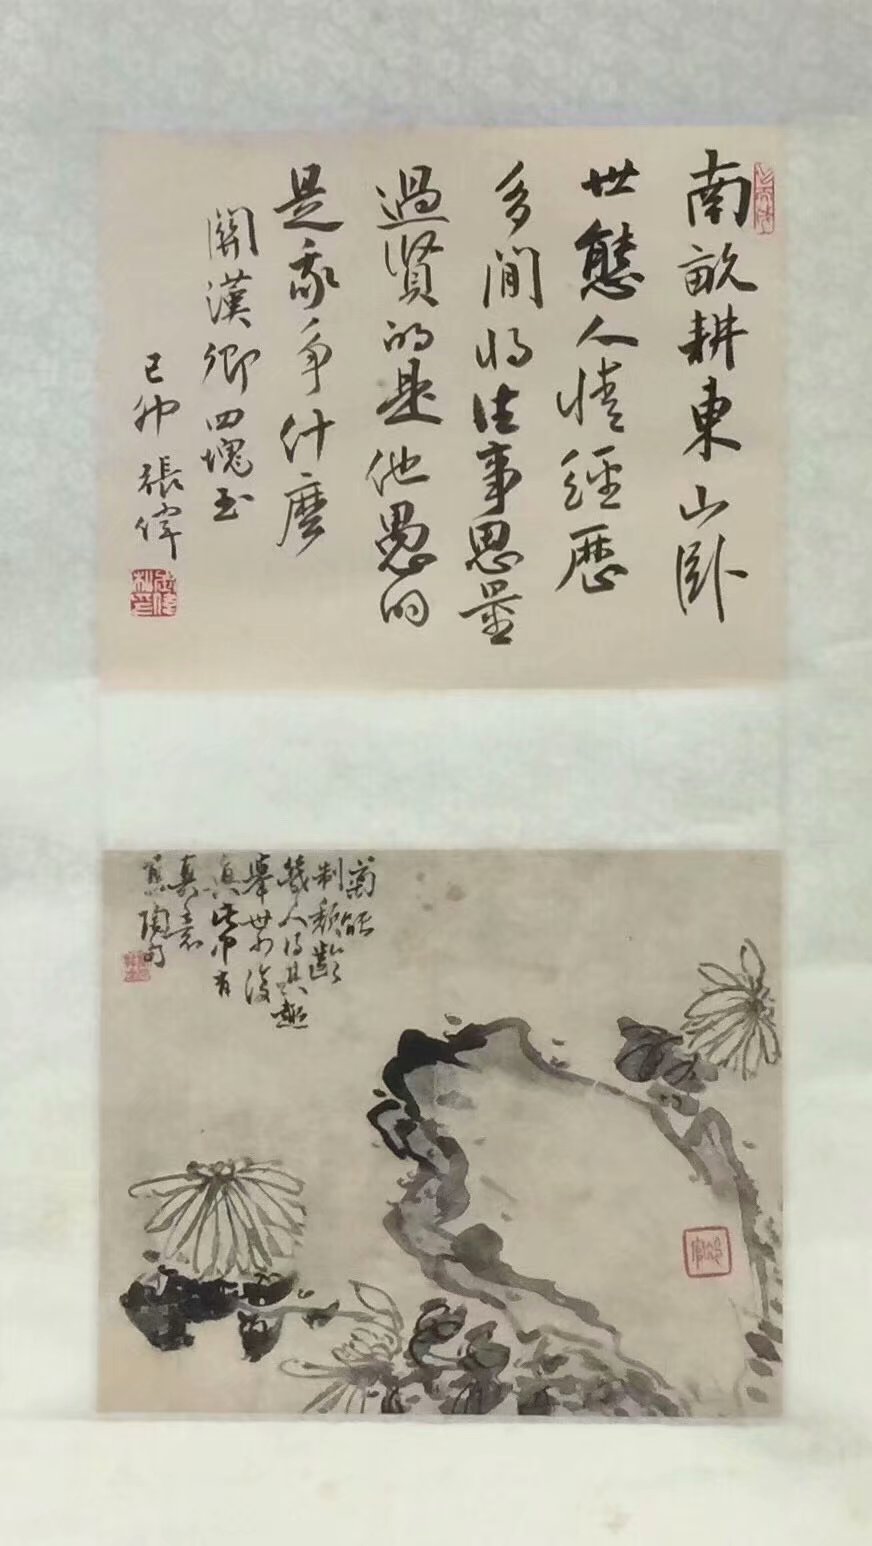 南畝耕東山卧
世態人情經歷
多閒将往事思量
過賢的是他愚的
是我争什麽
關漢卿四塊玉
己卯張偉
菊能
制頹齡
幾人得其趣
舉世少復
真此中有
真意
陶句